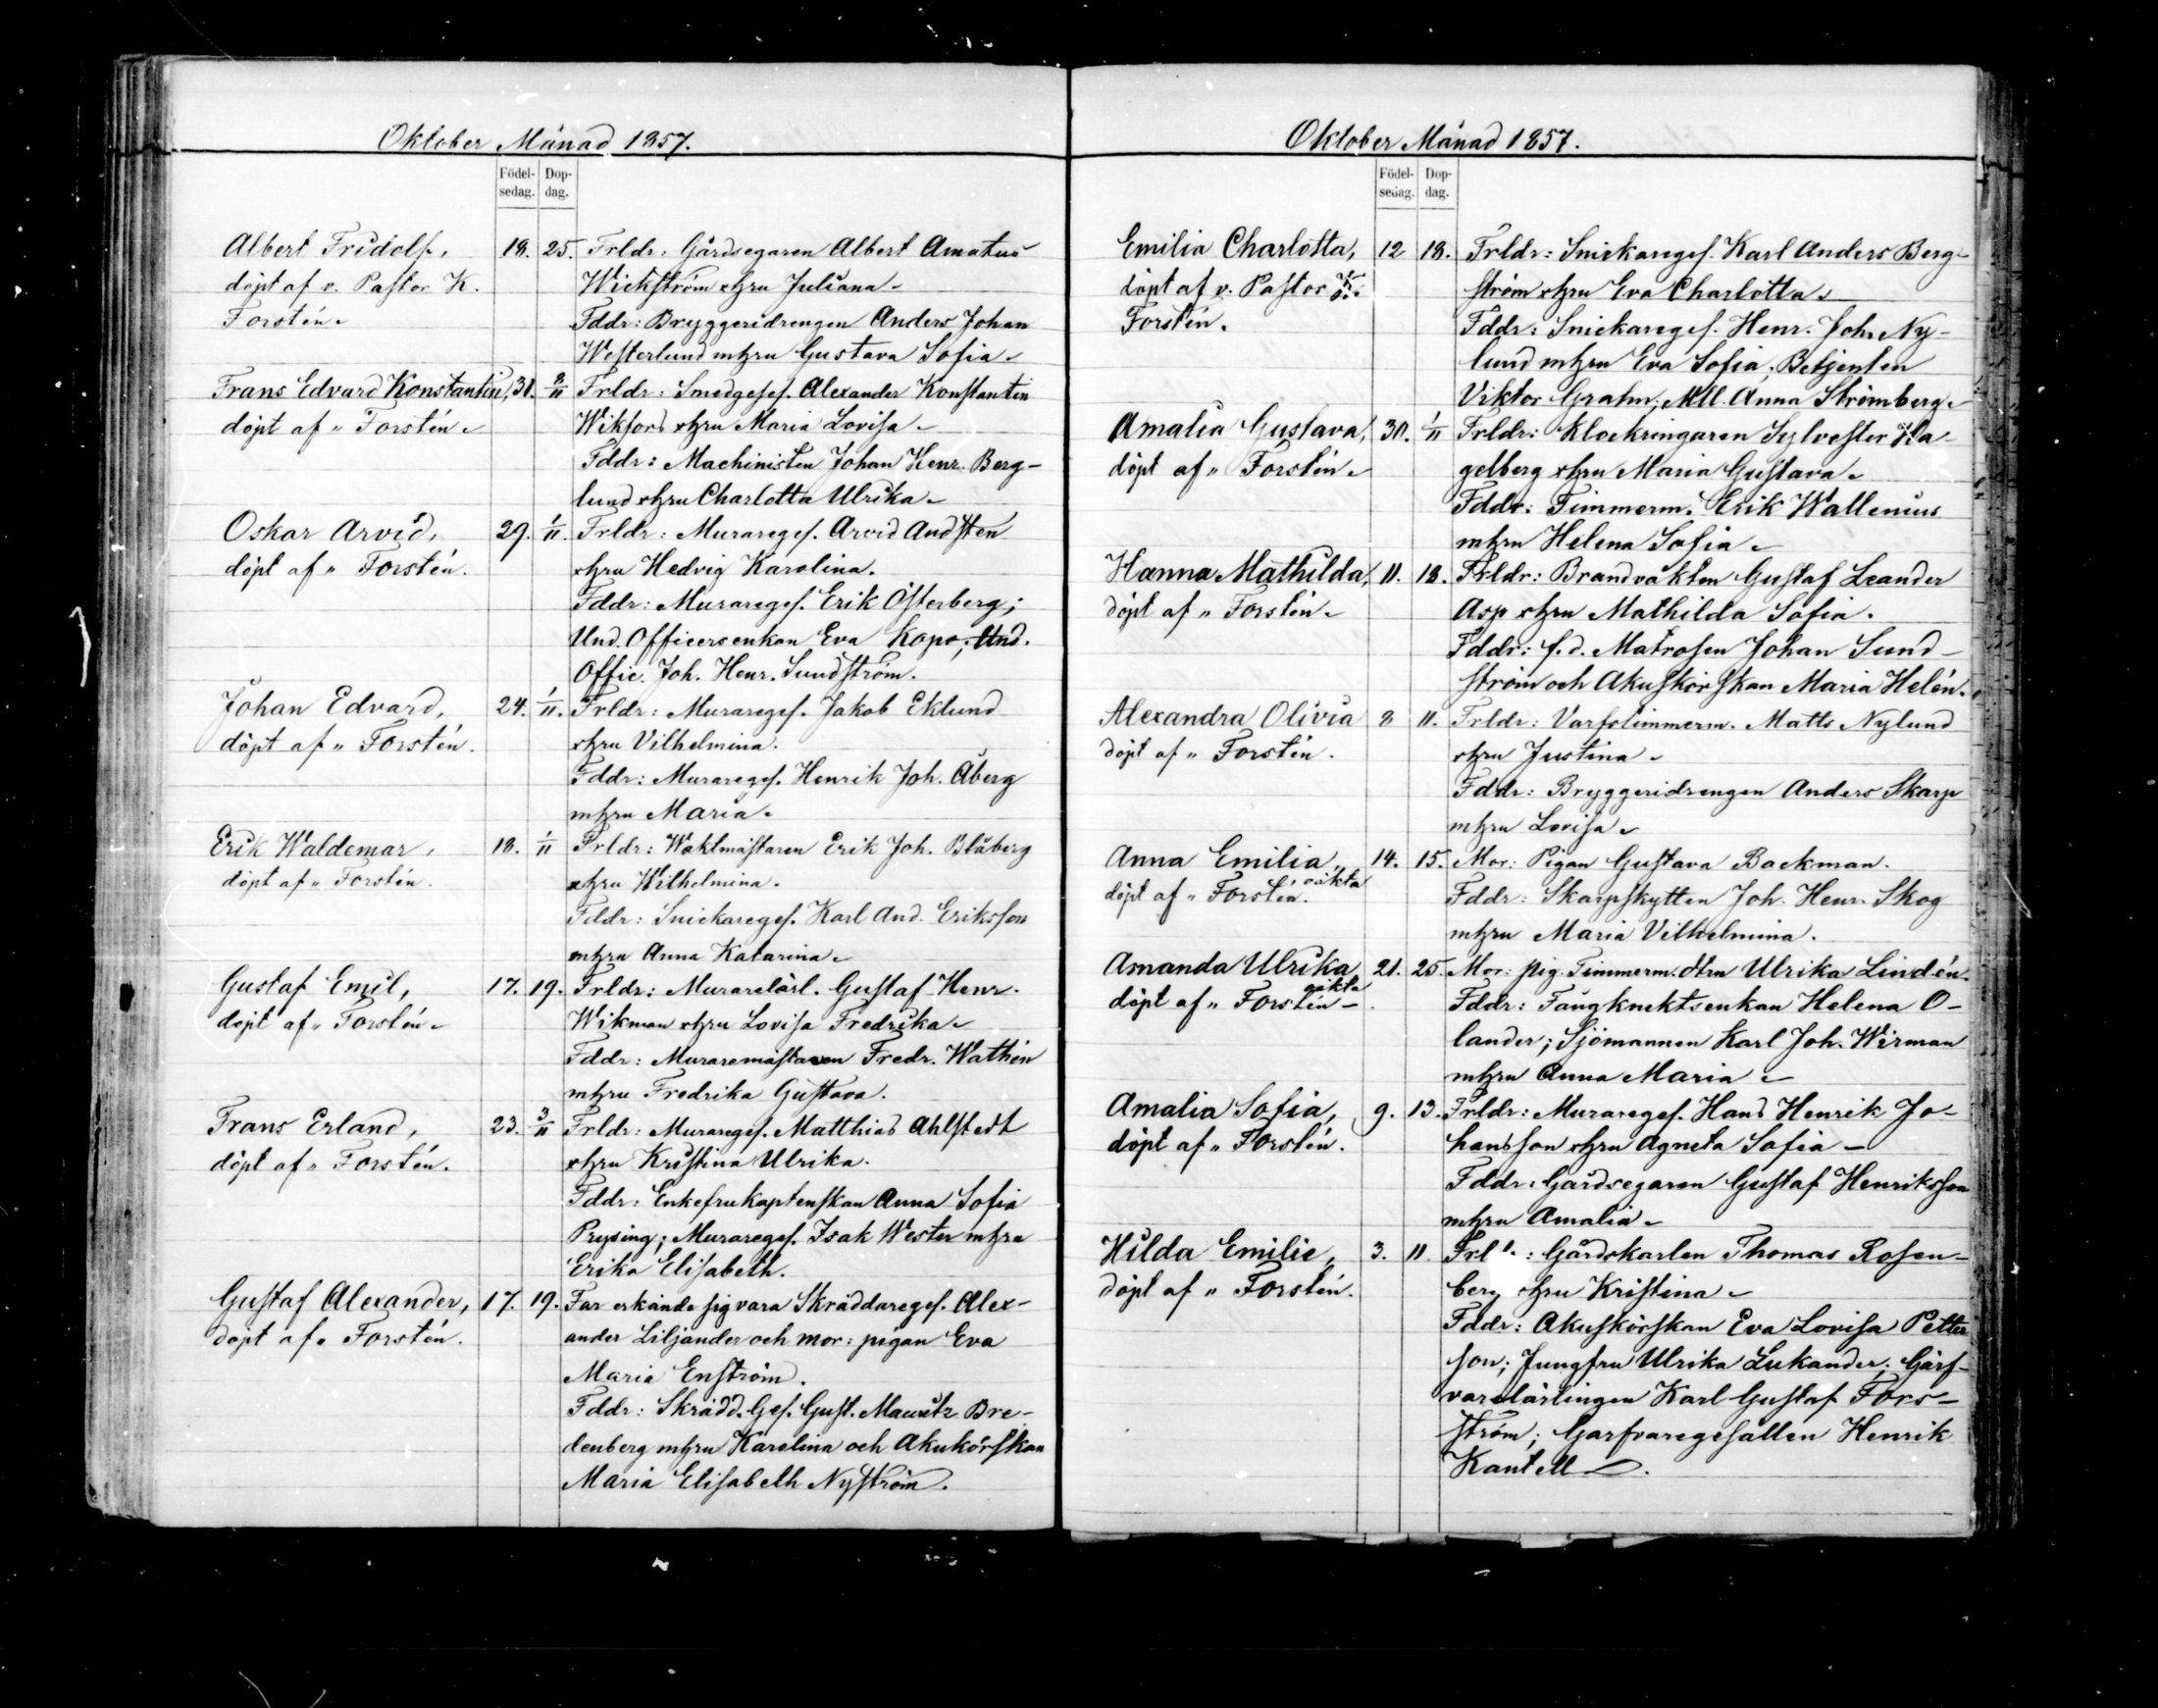 Oktober Månad 1857.
Födel-
sedag.
Dop-
dag.
Albert Fridolf, 18. 25. Frldr: Gårdsegaren Albert Amatus
döpt af v. Pastor K. Wickström o hzru Juliana
Forstén. Fddr: Bryggeridrengen Anders Johan
Westerlund m hzru Gustava Sofia
Frans Edvard Konstantin, 30. 8/11 Frldr: Smedgeses. Alexander Konstantin
döpt af " Forstén Wikfors o hzru Maria Lovisa
Fddr: Machinisten Johan Henr. Berg-
lund o hzru Charlotta Ulrika
Oskar Arvid, 29. 1/11. Frldr: Murareges. Arvid Andsten
döpt af " Forstén. o hzru Hedvig Karolina.
Fddr: Murareges. Erik Österberg;
Und. Officersenkan Eva Kopo; Und.
Offic. Joh. Henr. Sundström.
Johan Edvard, 24. 1/11. Frldr: Murareges. Jakob Eklund
döpt af " Forstén. o hzru Vilhelmina.
Fddr: Murareges. Henrik Joh. Åberg
m hzru Maria.
Erik Waldemar, 18. 1/11 Frldr: Waktmästaren Erik Joh. Blåberg
döpt af " Forstén. o hzru Wilhelmina.
Fddr: Snickareges. Karl And. Eriksson
m hzru Anna Katarina
Gustaf Emil, 17. 19. Frldr: Murarelärl. Gustaf Henr.
döpt af " Forstén Wikman o hzru Lovisa Fredrika
Fddr: Muraremästaren Fredr. Wathén
m hzru Fredrika Gustava.
Frans Erland, 23. 3/11 Frldr: Murareges. Matthias Ahlstedt
döpt af " Forstén. o hzru Kristina Ulrika.
Fddr: Enkefrukaptenskan Anna Sofia
Prysing; Murareges. Isak Wester m hzru
Erika Elisabeth.
Gustaf Alexander, 17. 19. Far erkände sig vara Skräddareges. Alex-
döpt af " Forstén. ander Liljander och mor: pigan Eva
Maria Enström.
Fddr: Skrädd. Ges. Gust. Mauritz Bre-
denberg m hzru Karolina och Akukörskan
Maria Elisabeth Nyström.
Oktober Månad 1857.
Födel-
sedag.
Dop-
dag.
Emilia Charlotta, 12 18. Frldr: Snickareges. Karl Anders Berg-
döpt af v. Pastor K. ström o hzru Eva Charlotta
Forstén. Fddr: Snickareges. Henr. Joh. Ny-
lund m hzru Eva Sofia; Betjenten
Viktor Grahn; Mll. Anna Strömberg
Amalia Gustava, 30. 1/11 Frldr: Klockringaren Sylvester Ha-
döpt af " Forstén gelberg o hzru Maria Gustava
Fddr: Timmerm. Erik Wallenius
m hzru Helena Sofia
Hanna Mathilda, 11. 18. Frldr: Brandvakten Gustaf Leander
döpt af " Forstén Asp o hzru Mathilda Sofia.
Fddr: f. d. Matrosen Johan Sund-
ström och Akuskörskan Maria Helén.
Alexandra Olivia 8 11. Frldr: Varfstimmerm. Matts Nylund
döpt af " Forstén. o hzru Justina
Fddr: Bryggeridrengen Anders Skarp
m hzru Lovisa
Anna Emilia, 14. 15. Mor: Pigan Gustava Backman.
oäkta
döpt af " Forstén. Fddr: Skarpskytten Joh. Henr. Skog
m hzru Maria Vilhelmina.
Amanda Ulrika 21. 25. Mor: pig. Timmerm.dtrn Ulrika Lindén.
oäkta
döpt af " Forstén Fddr: Fångknektsenkan Helena O-
lander; Sjömannen Karl Joh. Wirman
m hzru Anna Maria
Amalia Sofia, 9. 13. Frldr: Murareges. Hans Henrik Jo-
döpt af " Forstén. hansson o hzru Agneta Sofia
Fddr: Gårdsegaren Gustaf Henriksson
m hzru Amalia
Hilda Emilie, 3. 11 Frl : Gårdskarlen Thomas Rosen-
döpt af " Forstén. berg o hzru Kristina
Fddr: Akuskörskan Eva Lovisa Petter
son; Jungfru Ulrika Lukander; Garf-
varelärlingen Karl Gustaf Fors-
ström; Garfvaregesällen Henrik
Kantell.